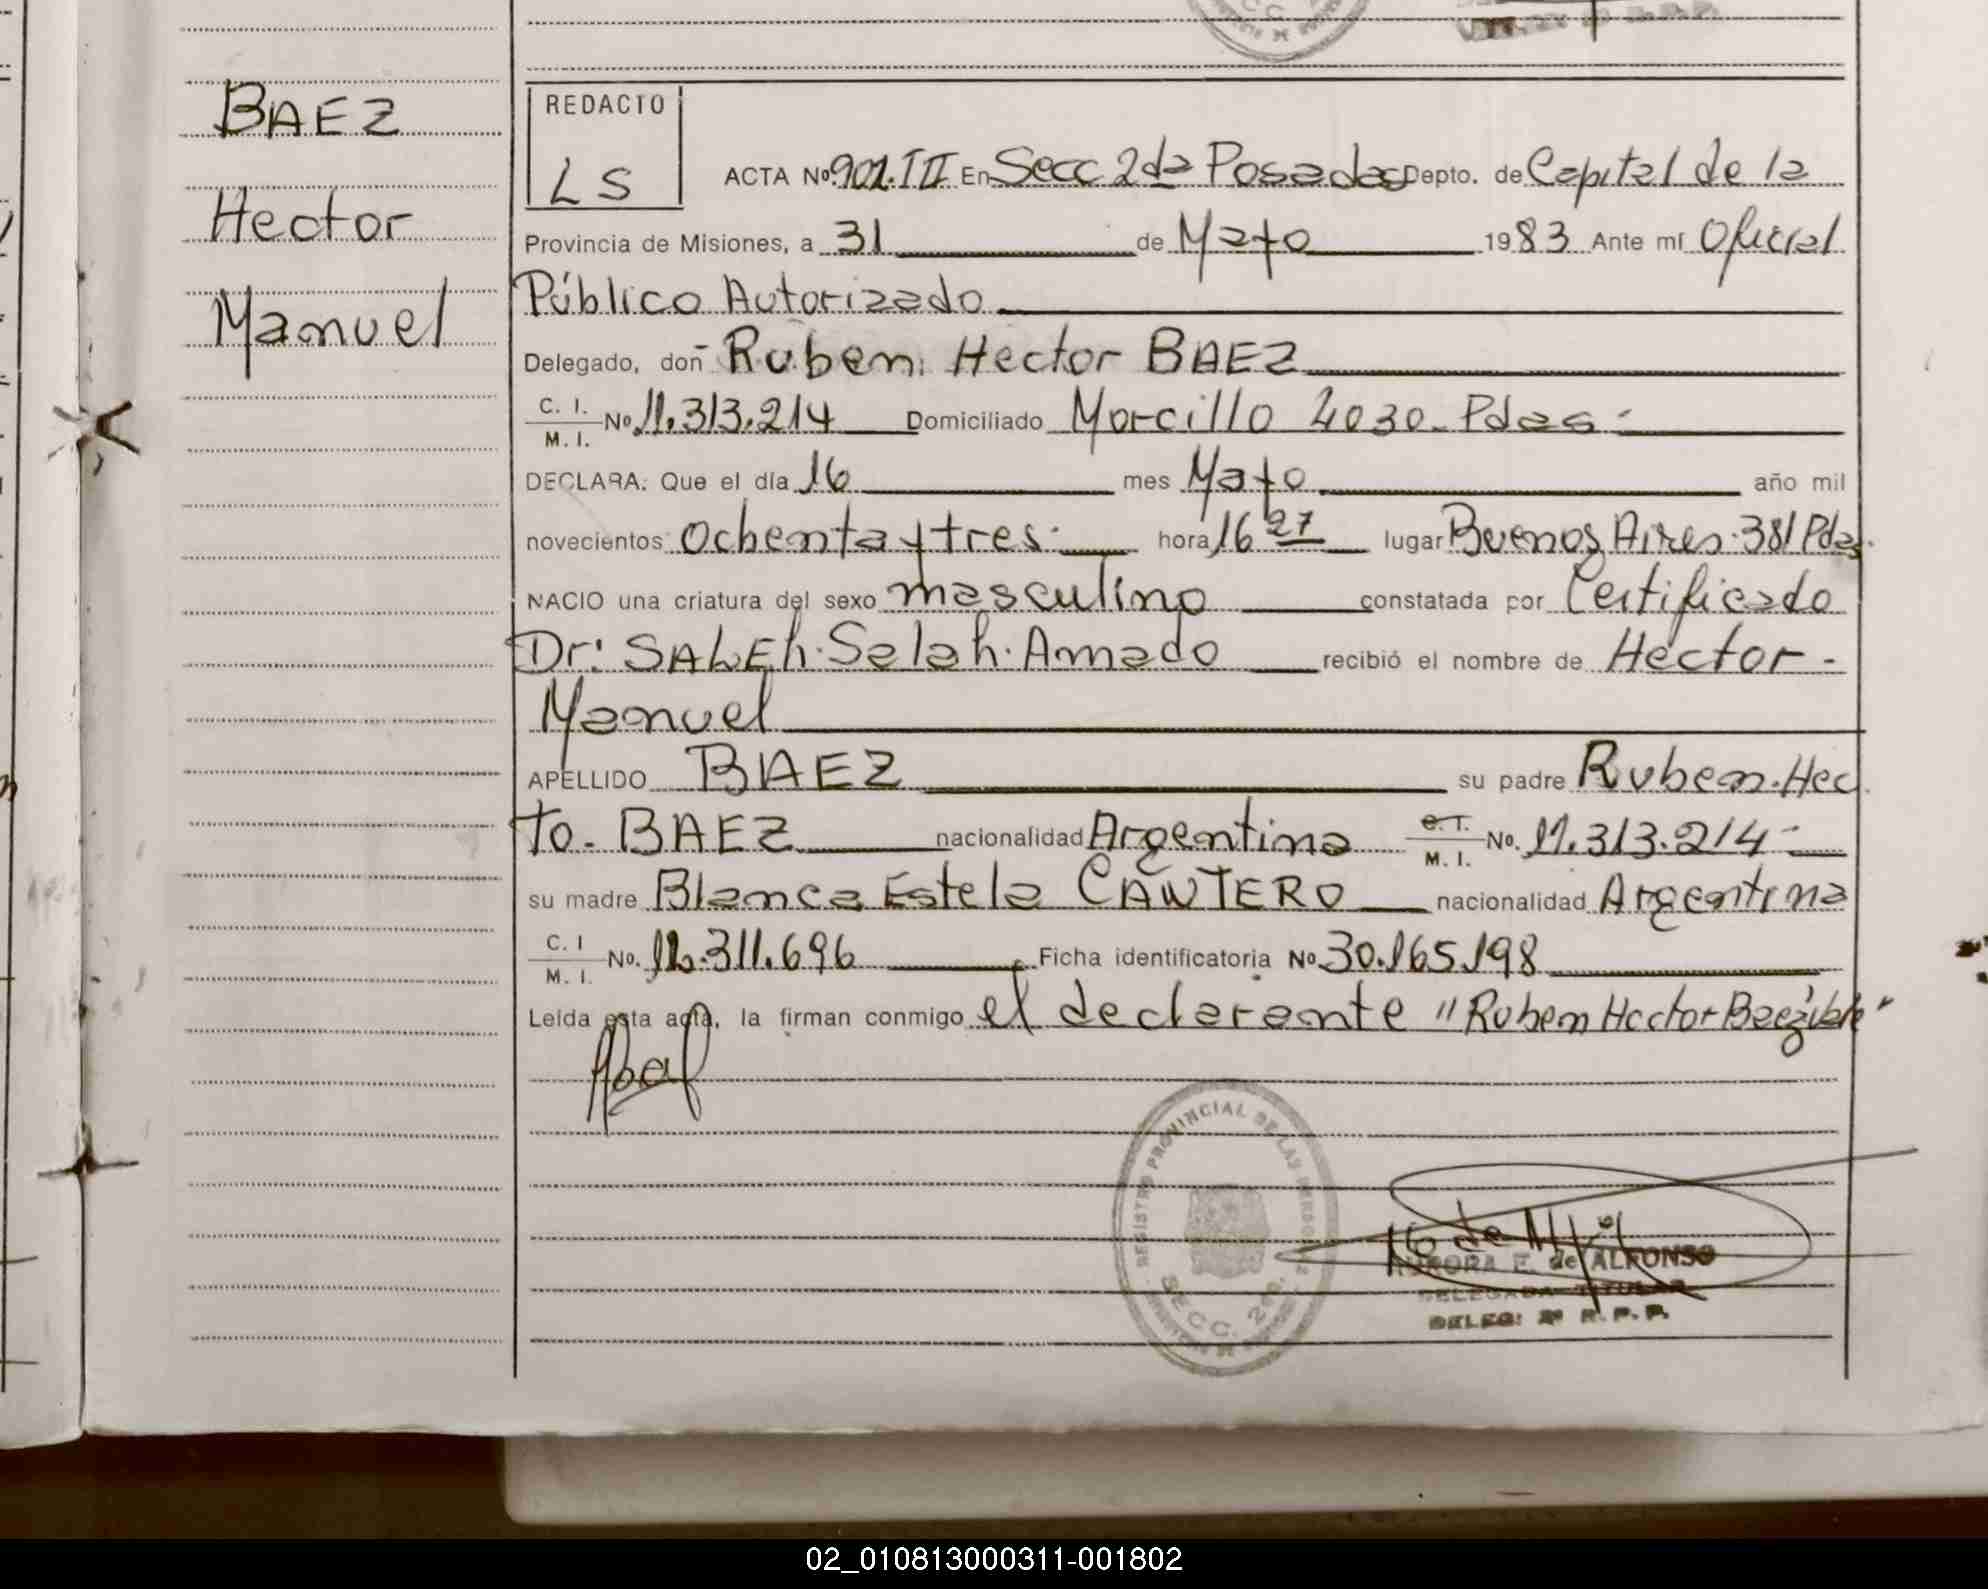 BAEZ
Hector
Manuel
REDACTO
LS
ACTA Nº 902.III En Secc 2da Posadas Depto. de Capital de la
Provincia de Misiones, a 31 de Mayo 1983 Ante mí Oficial
Público Autorizado
Delegado, don Ruben Hector BAEZ
C. I.
M. I. Nº 11.313.214 Domiciliado Morcillo 4030 - Pdas -
DECLARA: Que el día 16 mes Mayo año mil
novecientos ochenta y tres hora 16 27 lugar Buenos Aires 381 Pdas.
NACIO una criatura del sexo masculino constatada por Certificado
Dr: SALEh. Salah. Amado recibió el nombre de Hector -
Manuel
APELLIDO BAEZ su padre Ruben. Hec
to. BAEZ nacionalidad Argentina C. I.
M. I. No. 11.313.214 -
su madre Blanca Estela CANTERO nacionalidad Argentina
C. I
M. I. No. 12.311.696 Ficha identificatoria Nº 30.165.198
Leída esta acta, la firman conmigo el declarante "Ruben Hector Baez Vale"
REGISTRO PROVINCIAL DE LAS PERSONAS
SECC. 2da.
AURORA E. de ALFONSO
DELEGADA TITULAR
DELEG: 2ª R. P. P.
02_010813000311-001802